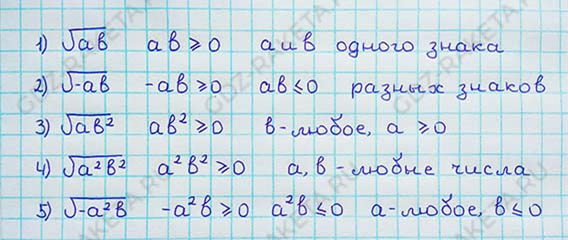 1) √ab ab ⩾ 0 a и b одного знака
2) √-ab -ab ⩾ 0 ab ⩽ 0 разных знаков
3) √ab² ab² ⩾ 0 b - любое, a ⩾ 0
4) √a²b² a²b² ⩾ 0 a, b - любые числа
5) √-a²b -a²b ⩾ 0 a²b ⩽ 0 a - любое, b ⩽ 0
GDZ-RAKETA.RU